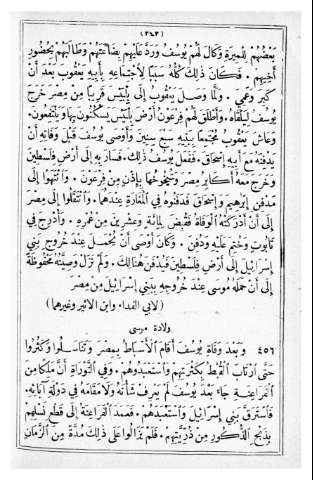 (٢٤٣)
بَعْضُهُمْ لِلْمِيرَةِ وَكَالَ لَهُمْ يُوسُفُ وَرَدَّ عَلَيْهِمْ بِضَاعَتَهُمْ وَطَالَبَهُمْ بِحُضُورِ
أَخِيهِمْ. فَكَانَ ذٰلِكَ كُلُّهُ سَبَبًا لِٱجْتِمَاعِهِ بِأَبِيهِ يَعْقُوبَ بَعْدَ أَنْ
كَبِرَ وَعَمِيَ. وَلَمَّا وَصَلَ يَعْقُوبُ إِلَى بُلْبَيْسَ قَرِيبًا مِنْ مِصْرَ خَرَجَ
يُوسُفُ لِيَلْقَاهُ. وَأَطْلَقَ لَهُمْ فِرْعَوْنُ أَرْضَ بُلْبَيْسَ يَسْكُنُونَ بِهَا وَيَنْتَفِعُونَ.
وَعَاشَ يَعْقُوبُ مُجْتَمِعًا بِبَنِيهِ سَبْعَ سِنِينَ وَأَوْصَى يُوسُفَ قَبْلَ وَفَاتِهِ أَنْ
يَدْفِنَهُ مَعَ أَبِيهِ إِسْحَاقَ. فَفَعَلَ يُوسُفُ ذٰلِكَ. فَسَارَ بِهِ إِلَى أَرْضِ فِلَسْطِينَ
وَخَرَجَ مَعَهُ أَكَابِرُ مِصْرَ وَشُيُوخُهَا بِإِذْنٍ مِنْ فِرْعَوْنَ. وَٱنْتَهَوْا إِلَى
مَدْفِنِ إِبْرٰهِيمَ وَإِسْحَاقَ فَدَفَنُوهُ فِي ٱلْمَغَارَةِ عِنْدَهُمَا. وَٱنْتَقَلُوا إِلَى مِصْرَ
إِلَى أَنْ أَدْرَكَتْهُ ٱلْوَفَاةُ فَقُبِضَ لِمِائَةٍ وَعِشْرِينَ مِنْ عُمْرِهِ. وَأُدْرِجَ فِي
تَابُوتٍ وَخُتِمَ عَلَيْهِ وَدُفِنَ. وَكَانَ أَوْصَى أَنْ يُحْمَلَ عِنْدَ خُرُوجِ بَنِي
إِسْرَائِيلَ إِلَى أَرْضِ فِلَسْطِينَ فَيُدْفَنَ هُنَالِكَ. وَلَمْ تَزَلْ وَصِيَّتُهُ مَحْفُوظَةً
إِلَى أَنْ حَمَلَهُ مُوسَى عِنْدَ خُرُوجِهِ بِبَنِي إِسْرَائِيلَ مِنْ مِصْرَ
(لابي الفداء وابن الاثير وغيرهما)
ولادة موسى
٤٥٦ وَبَعْدَ وَفَاةِ يُوسُفَ أَقَامَ ٱلْأَسْبَاطُ بِمِصْرَ وَتَنَاسَلُوا وَكَثُرُوا
حَتَّى ٱرْتَابَ ٱلْقِبْطُ بِكَثْرَتِهِمْ وَٱسْتَعْبَدُوهُمْ. وَفِي ٱلتَّوْرَاةِ أَنَّ مَلِكًا مِنَ
ٱلْفَرَاعِنَةِ جَاءَ بَعْدَ يُوسُفَ لَمْ يَعْرِفْ شَأْنَهُ وَلَا مَقَامَهُ فِي دَوْلَةِ آبَائِهِ.
فَٱسْتَرَقَّ بَنِي إِسْرَائِيلَ وَٱسْتَعْبَدَهُمْ. فَعَمَدَ ٱلْفَرَاعِنَةُ إِلَى قَطْعِ نَسْلِهِمْ
بِذَبْحِ ٱلذُّكُورِ مِنْ ذُرِّيَّتِهِمْ. فَلَمْ يَزَالُوا عَلَى ذٰلِكَ مُدَّةً مِنَ ٱلزَّمَانِ